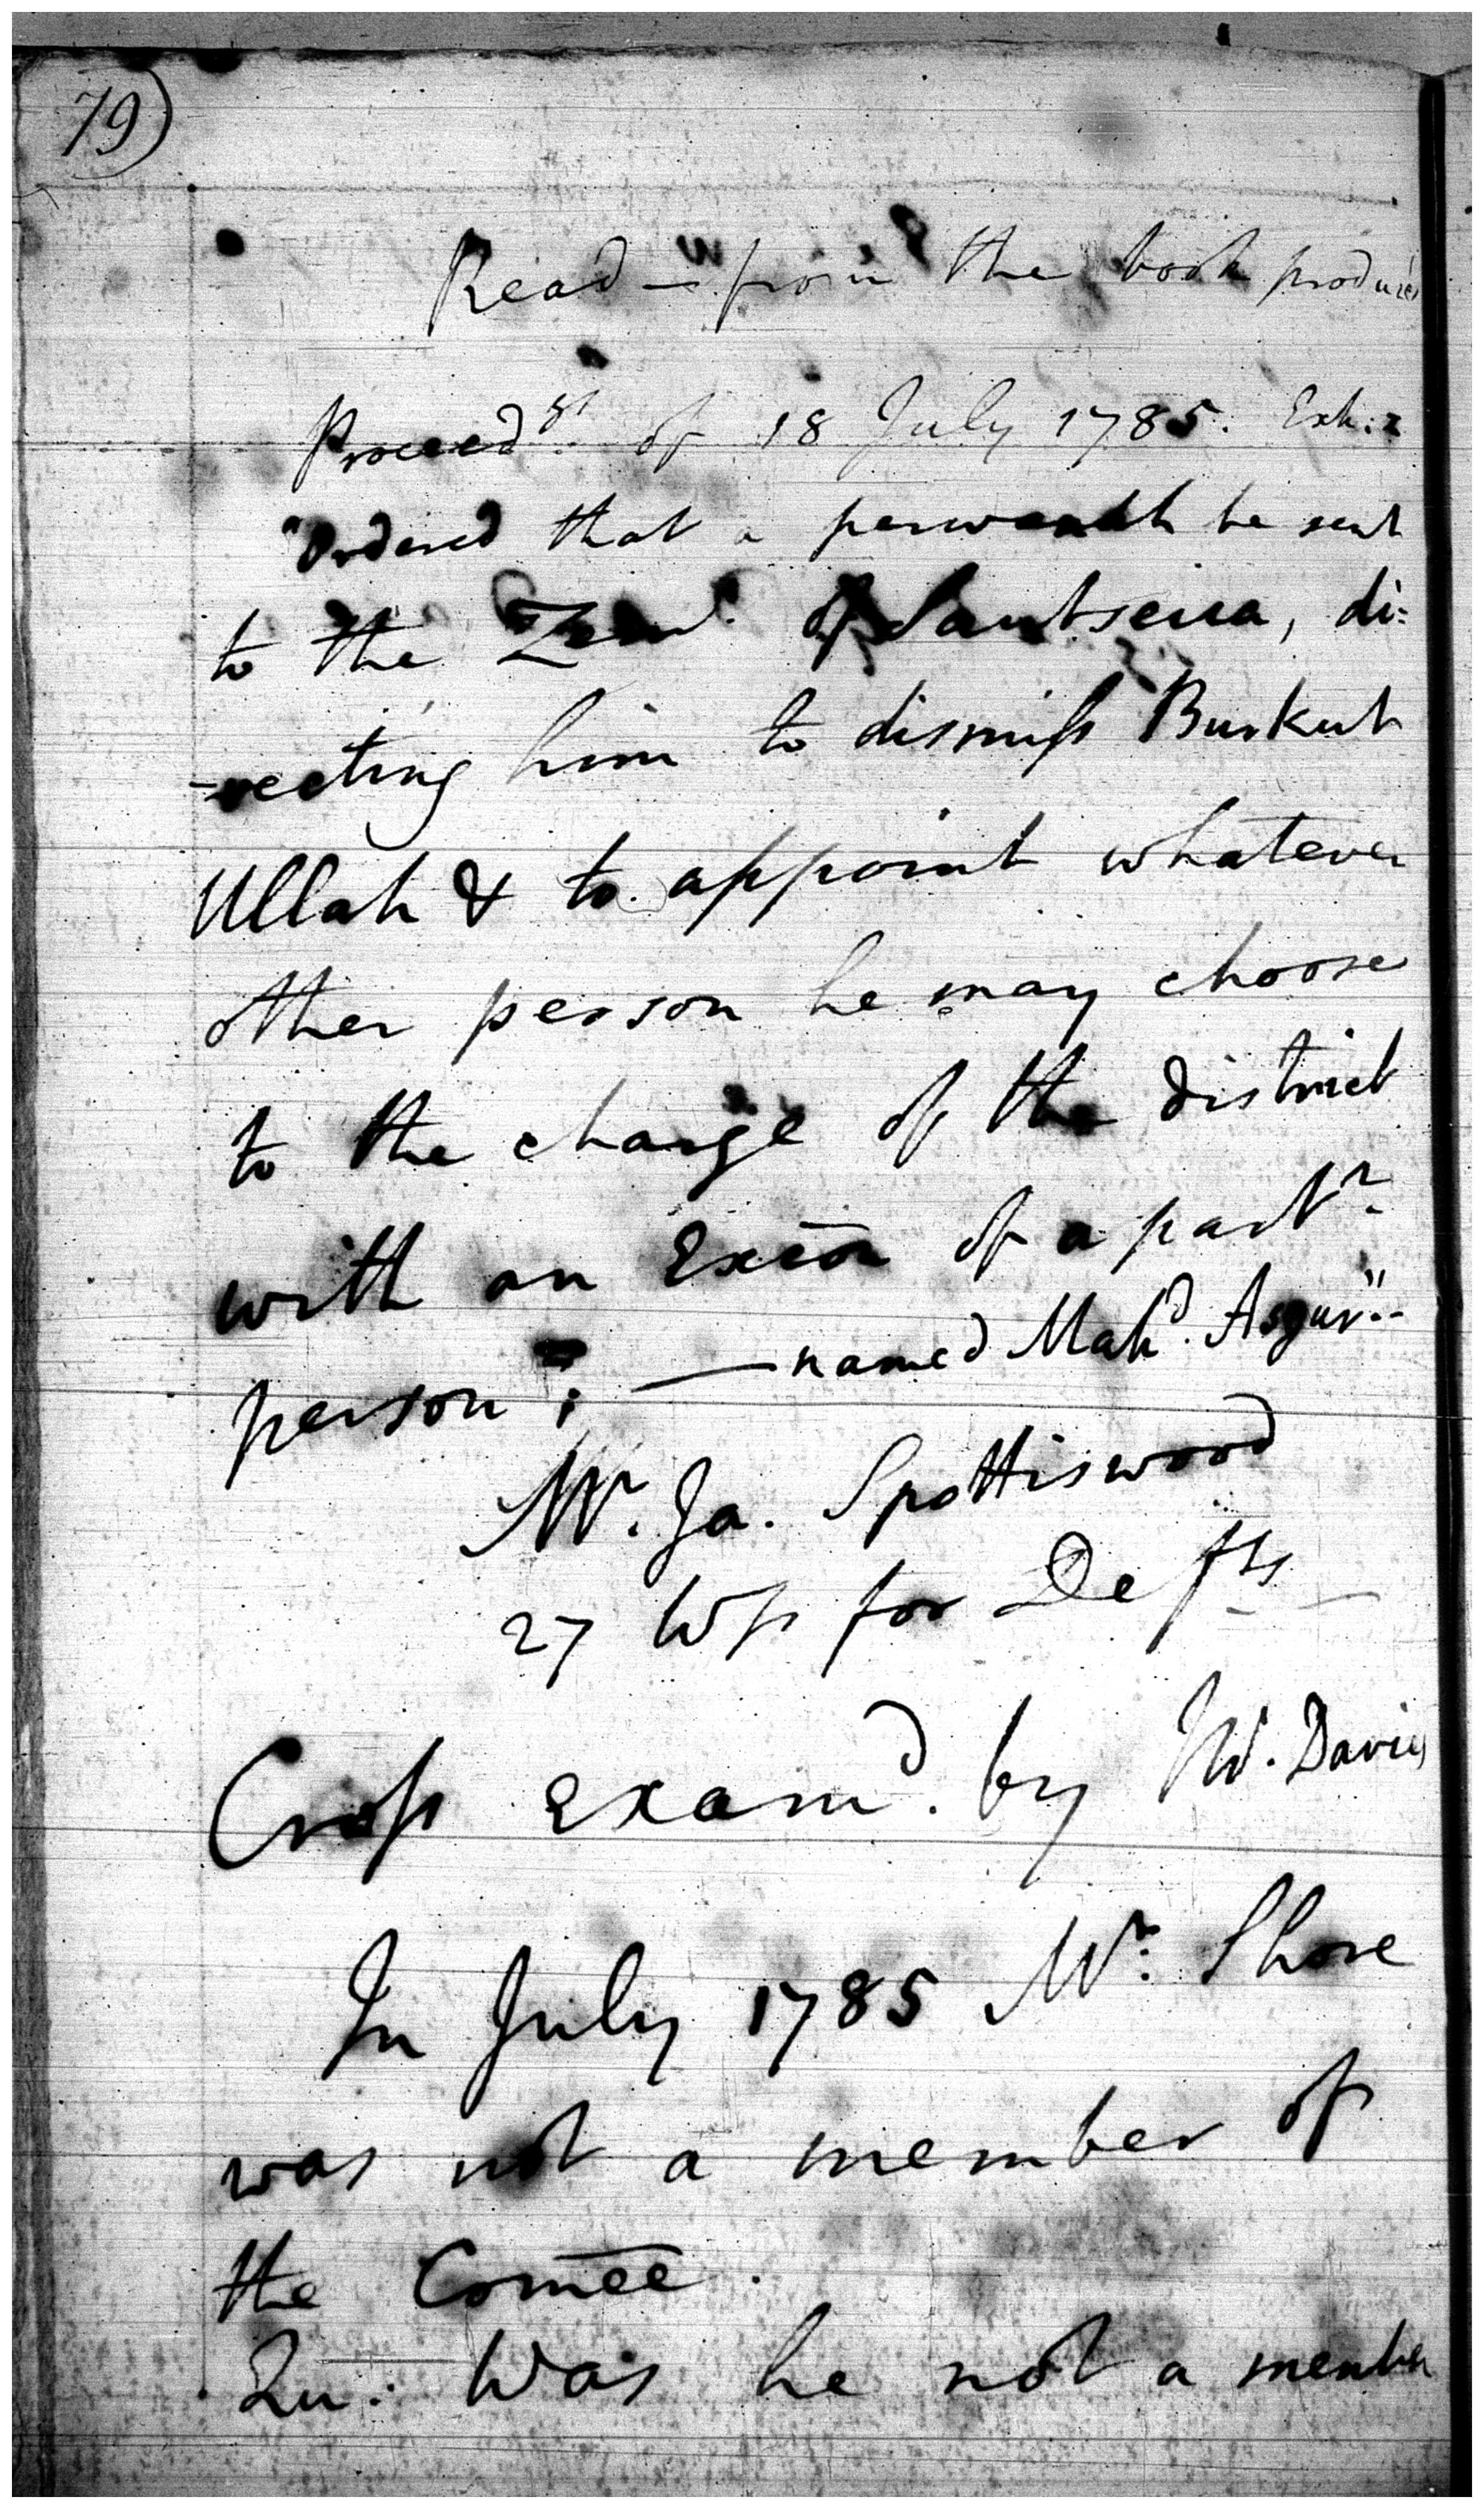 79)
Read – from the book produced
Proceed.gs of 18 July 1785. Exh:
"Ordered that a perwanah be sent
to the Zem.r of Santseira, di:
-recting him to dismiss Burkut
Ullah & to appoint whatever
other person he may choose
to the charge of the district
with an Excōn of a part.r
person ; — named Mah.d Asgur".-
Mr. Ja. Spottiswood
27 Wss for Defts —
Cross Exam.d by Mr. Davies
In July 1785 Mr. Shore
was not a member of
the Comēe.
Qu: Was he not a member